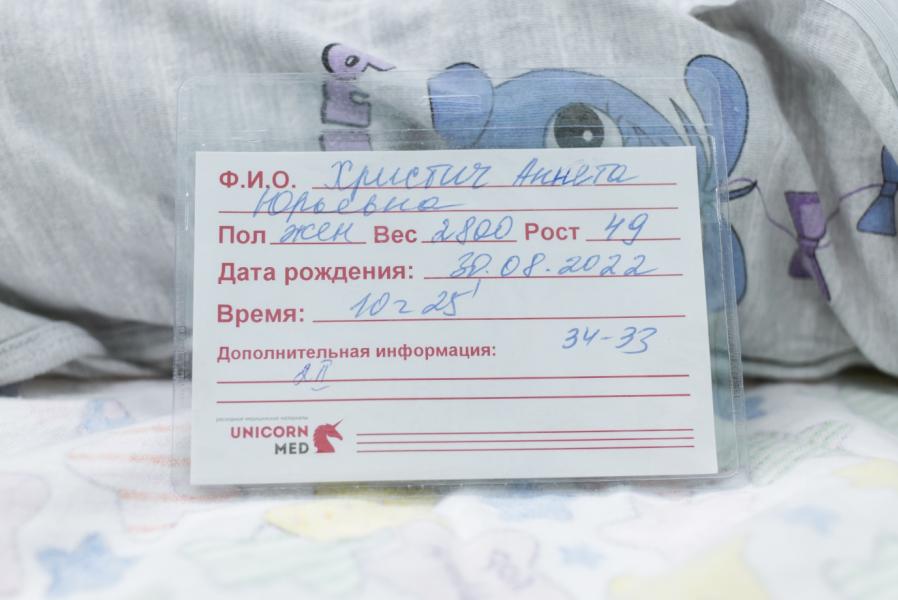 Ф.И.О. Христич Аннета
Юрьевна
Пол жен Вес 2800 Рост 49
Дата рождения: 30.08.2022
Время: 10ч 25'
Дополнительная информация: 34-33
расходные медицинские материалы
UNICORN
MED